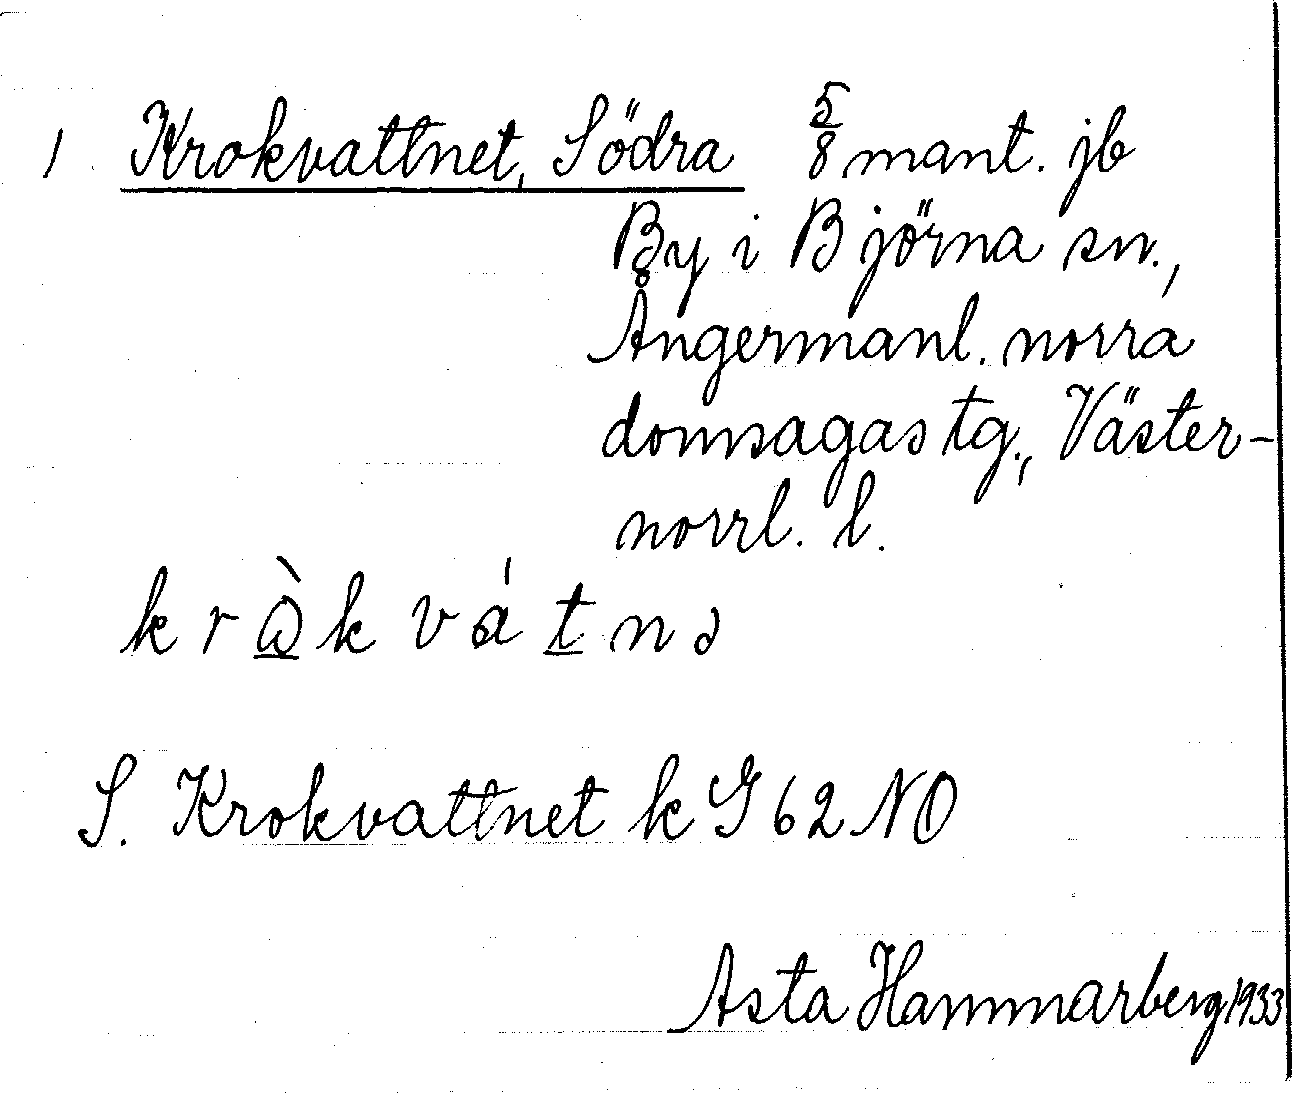 1 Krokvattnet, Södra 5/8 mant. jb
By i Björna sn.,
Ångermanl. norra
domsagas tg., Väster-
norrl. l.
k r ò̲ k v á t̲ n ə
S. Krokvattnet k G 62 NO
Asta Hammarberg 1933